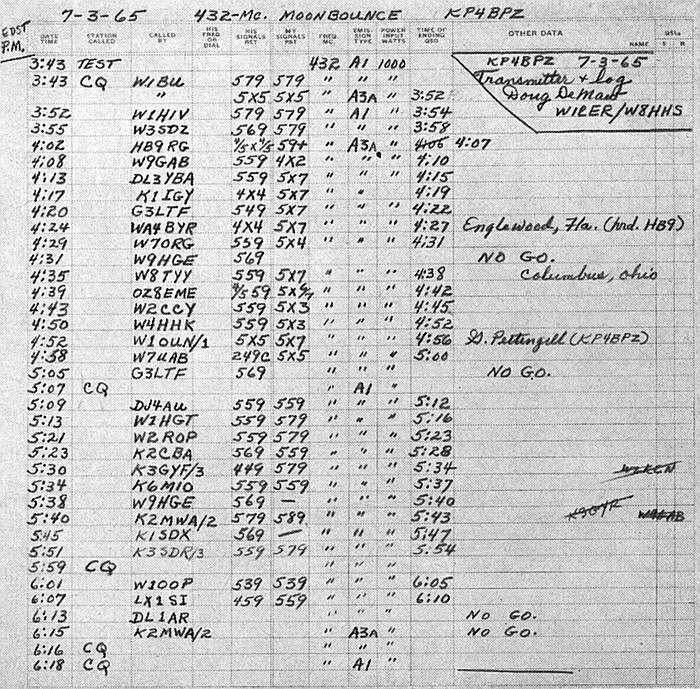 7-3-65 432-Mc. MOONBOUNCE KP4BPZ
EDST P.M.
DATE TIME STATION CALLED CALLED BY HIS FREQ OR DIAL HIS SIGNALS RST MY SIGNALS RST FREQ. MC. EMIS- SION TYPE POWER INPUT WATTS TIME OF ENDING QSO OTHER DATA NAME QSLs S R
3:43 TEST 432 A1 1000 KP4BPZ 7-3-65
3:43 CQ W1BU 579 579 " " " Transmitter & log
" 5X5 5X5 " A3A " 3:52 Doug DeMaw
3:52 W1HIV 579 579 " A1 " 3:54 W1CER/W8HHS
3:55 W3SDZ 569 579 " " " 3:58
4:02 HB9RG 59+ " A3A " 4:07
4:08 W9GAB 559 4X2 " " " 4:10
4:13 DL3YBA 559 5X7 " " " 4:15
4:17 K1IGY 4X4 5X7 " " " 4:19
4:20 G3LTF 549 5X7 " " " 4:22
4:24 WA4BYR 4X4 5X7 " " " 4:27 Englewood, Fla. (hrd. HB9)
4:29 W7ORG 559 5X4 " " " 4:31
4:31 W9HGE 569 NO GO.
4:35 W8TYY 559 5X7 " " " 4:38 Columbus, Ohio
4:39 OZ8EME 4/559 " " " 4:42
4:43 W2CCY 559 5X3 " " " 4:45
4:50 W4HHK 559 5X3 " " " 4:52
4:52 W1OUN/1 5X5 5X7 " " " 4:56 G. Pettengill (KP4BPZ)
4:58 W7UAB 249C 5X5 " " " 5:00
5:05 G3LTF 569 " " " NO GO.
5:07 CQ " A1 "
5:09 DJ4AU 559 559 " " " 5:12
5:13 W1HGT 559 579 " " " 5:16
5:21 W2ROP 559 579 " " " 5:23
5:23 K2CBA 569 559 " " " 5:28
5:30 K3GYF/3 449 579 " " " 5:34
5:34 K6MIO 559 559 " " " 5:37
5:38 W9HGE 569 — " " " 5:40
5:40 K2MWA/2 579 589 " " " 5:43
5:45 K1SDX 569 — " " " 5:47
5:51 K3SDR/3 559 579 " " " 5:54
5:59 CQ " " "
6:01 W1OOP 539 539 " " " 6:05
6:07 LX1SI 459 559 " " " 6:10
6:13 DL1AR " " " NO GO.
6:15 K2MWA/2 " A3A " NO GO.
6:16 CQ " " "
6:18 CQ " A1 "